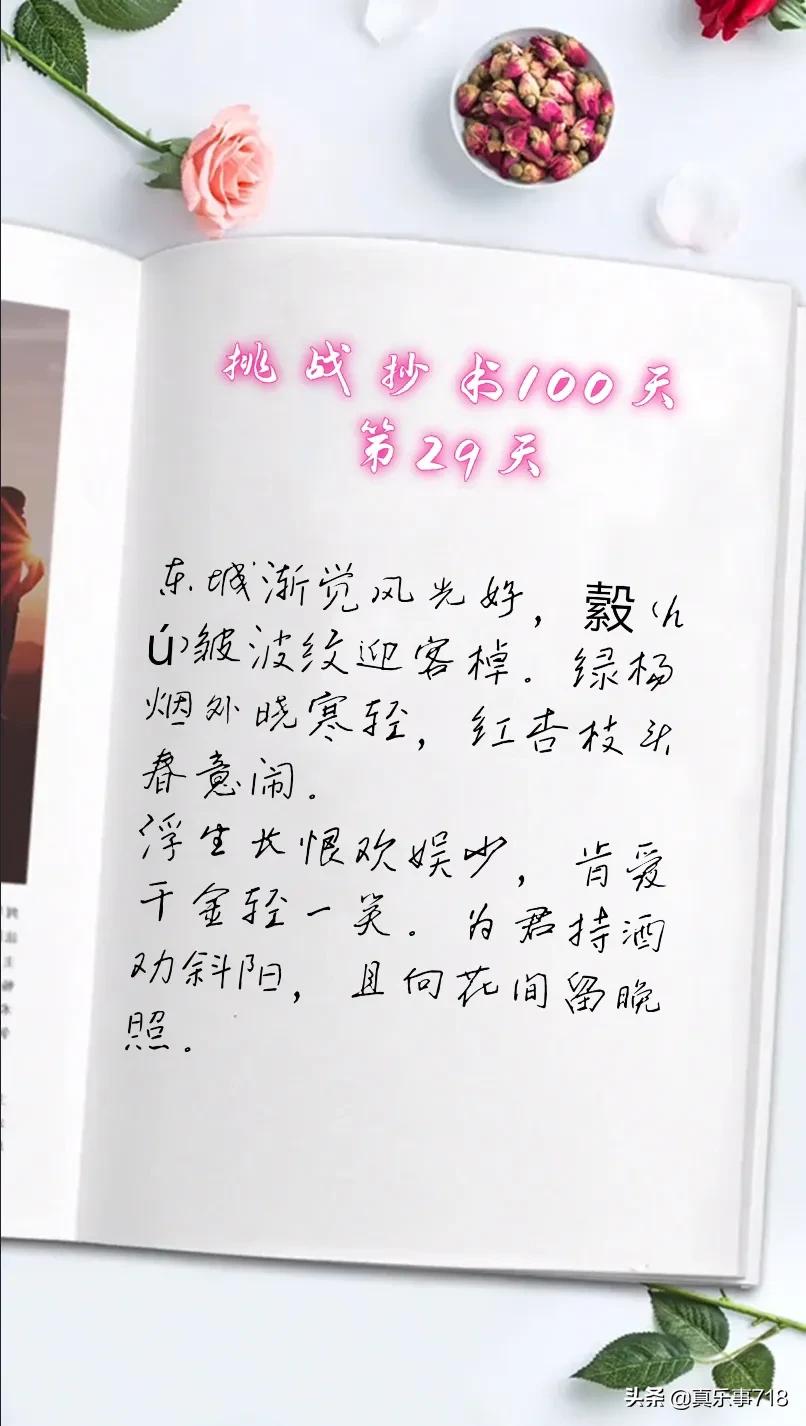 挑战抄书100天
第29天
东城渐觉风光好，縠（h
ú）皱波纹迎客棹。绿杨
烟外晓寒轻，红杏枝头
春意闹。
浮生长恨欢娱少，肯爱
千金轻一笑。为君持酒
劝斜阳，且向花间留晚
照。
头条 @真乐事718